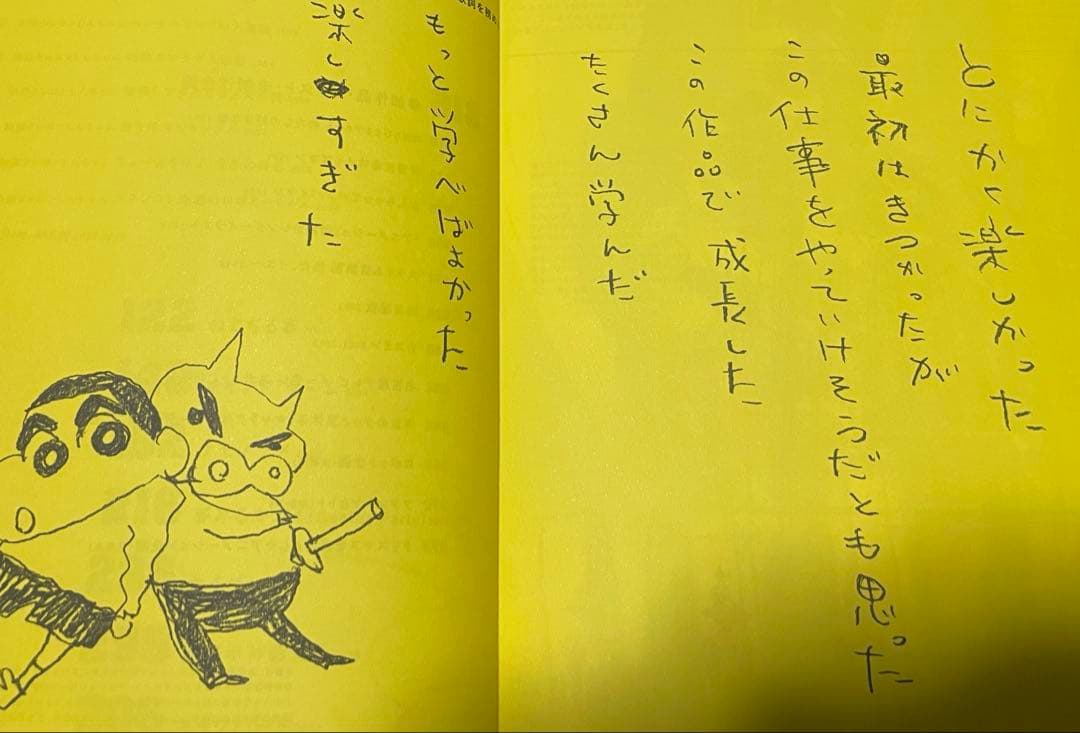 とにかく楽しかった
最初はきつかったが
この仕事をやっていけそうだとも思った
この作品で成長した
たくさん学んだ
もっと学べばよかった
楽しすぎた